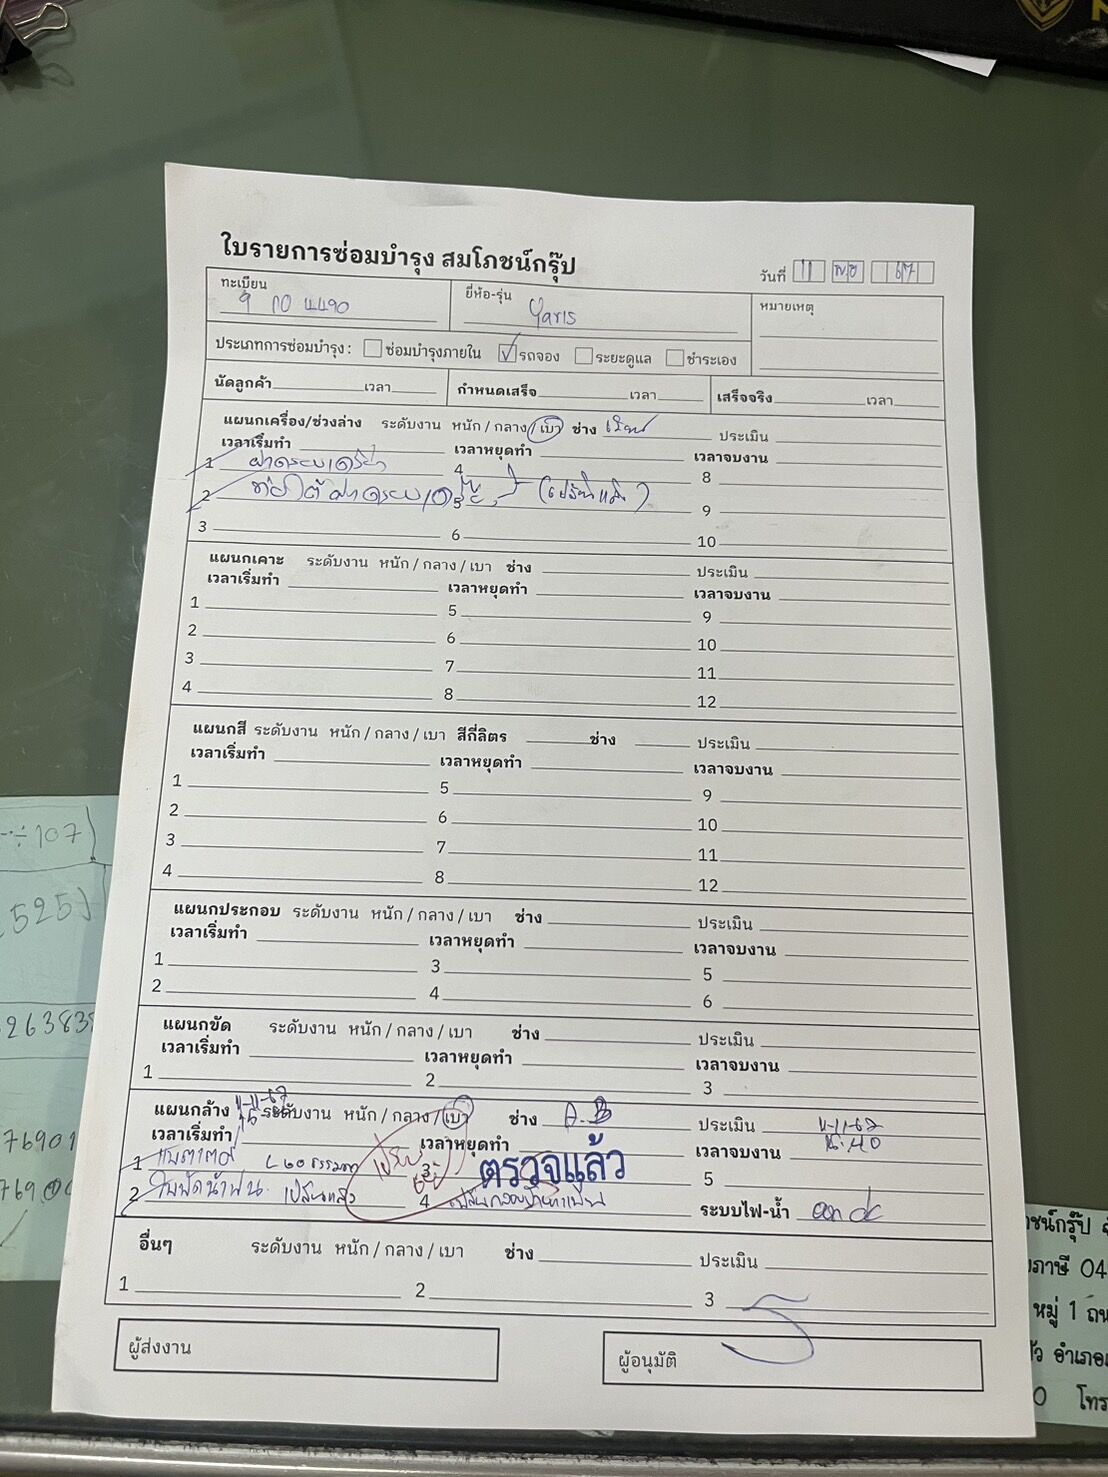 ใบรายการซ่อมบำรุง สมโภชน์กรุ๊ป
วันที่ 11 พย 67
ทะเบียน ยี่ห้อ-รุ่น หมายเหตุ
9 กอ 4490 Yaris
ประเภทการซ่อมบำรุง : ซ่อมบำรุงภายใน ✓ รถจอง ระยะดูแล ชำระเอง
นัดลูกค้า เวลา กำหนดเสร็จ เวลา เสร็จจริง เวลา
แผนกเครื่อง/ช่วงล่าง ระดับงาน หนัก / กลาง / เบา ช่าง ประเมิน
เวลาเริ่มทำ เวลาหยุดทำ เวลาจบงาน
1 4 8
2 5 9
3 6 10
แผนกเคาะ ระดับงาน หนัก / กลาง / เบา ช่าง ประเมิน
เวลาเริ่มทำ เวลาหยุดทำ เวลาจบงาน
1 5 9
2 6 10
3 7 11
4 8 12
แผนกสี ระดับงาน หนัก / กลาง / เบา สีกี่ลิตร ช่าง ประเมิน
เวลาเริ่มทำ เวลาหยุดทำ เวลาจบงาน
1 5 9
2 6 10
3 7 11
4 8 12
แผนกประกอบ ระดับงาน หนัก / กลาง / เบา ช่าง ประเมิน
เวลาเริ่มทำ เวลาหยุดทำ เวลาจบงาน
1 3 5
2 4 6
แผนกขัด ระดับงาน หนัก / กลาง / เบา ช่าง ประเมิน
เวลาเริ่มทำ เวลาหยุดทำ เวลาจบงาน
1 2 3
แผนกล้าง 11-11-67 ระดับงาน หนัก / กลาง / เบา ช่าง A.B ประเมิน 11-11-67
เวลาเริ่มทำ เวลาหยุดทำ เวลาจบงาน 16:40
1 แบตเตอรี่ 3 ตรวจแล้ว 5
2 ใบปัดน้ำฝน เปลี่ยนแล้ว 4 ระบบไฟ-น้ำ
อื่นๆ ระดับงาน หนัก / กลาง / เบา ช่าง ประเมิน
1 2 3
ผู้ส่งงาน ผู้อนุมัติ
÷107
525
26383
76901
769
ชน์กรุ๊ป
ภาษี 04
หมู่ 1 ถน
อำเภอ
0 โทร